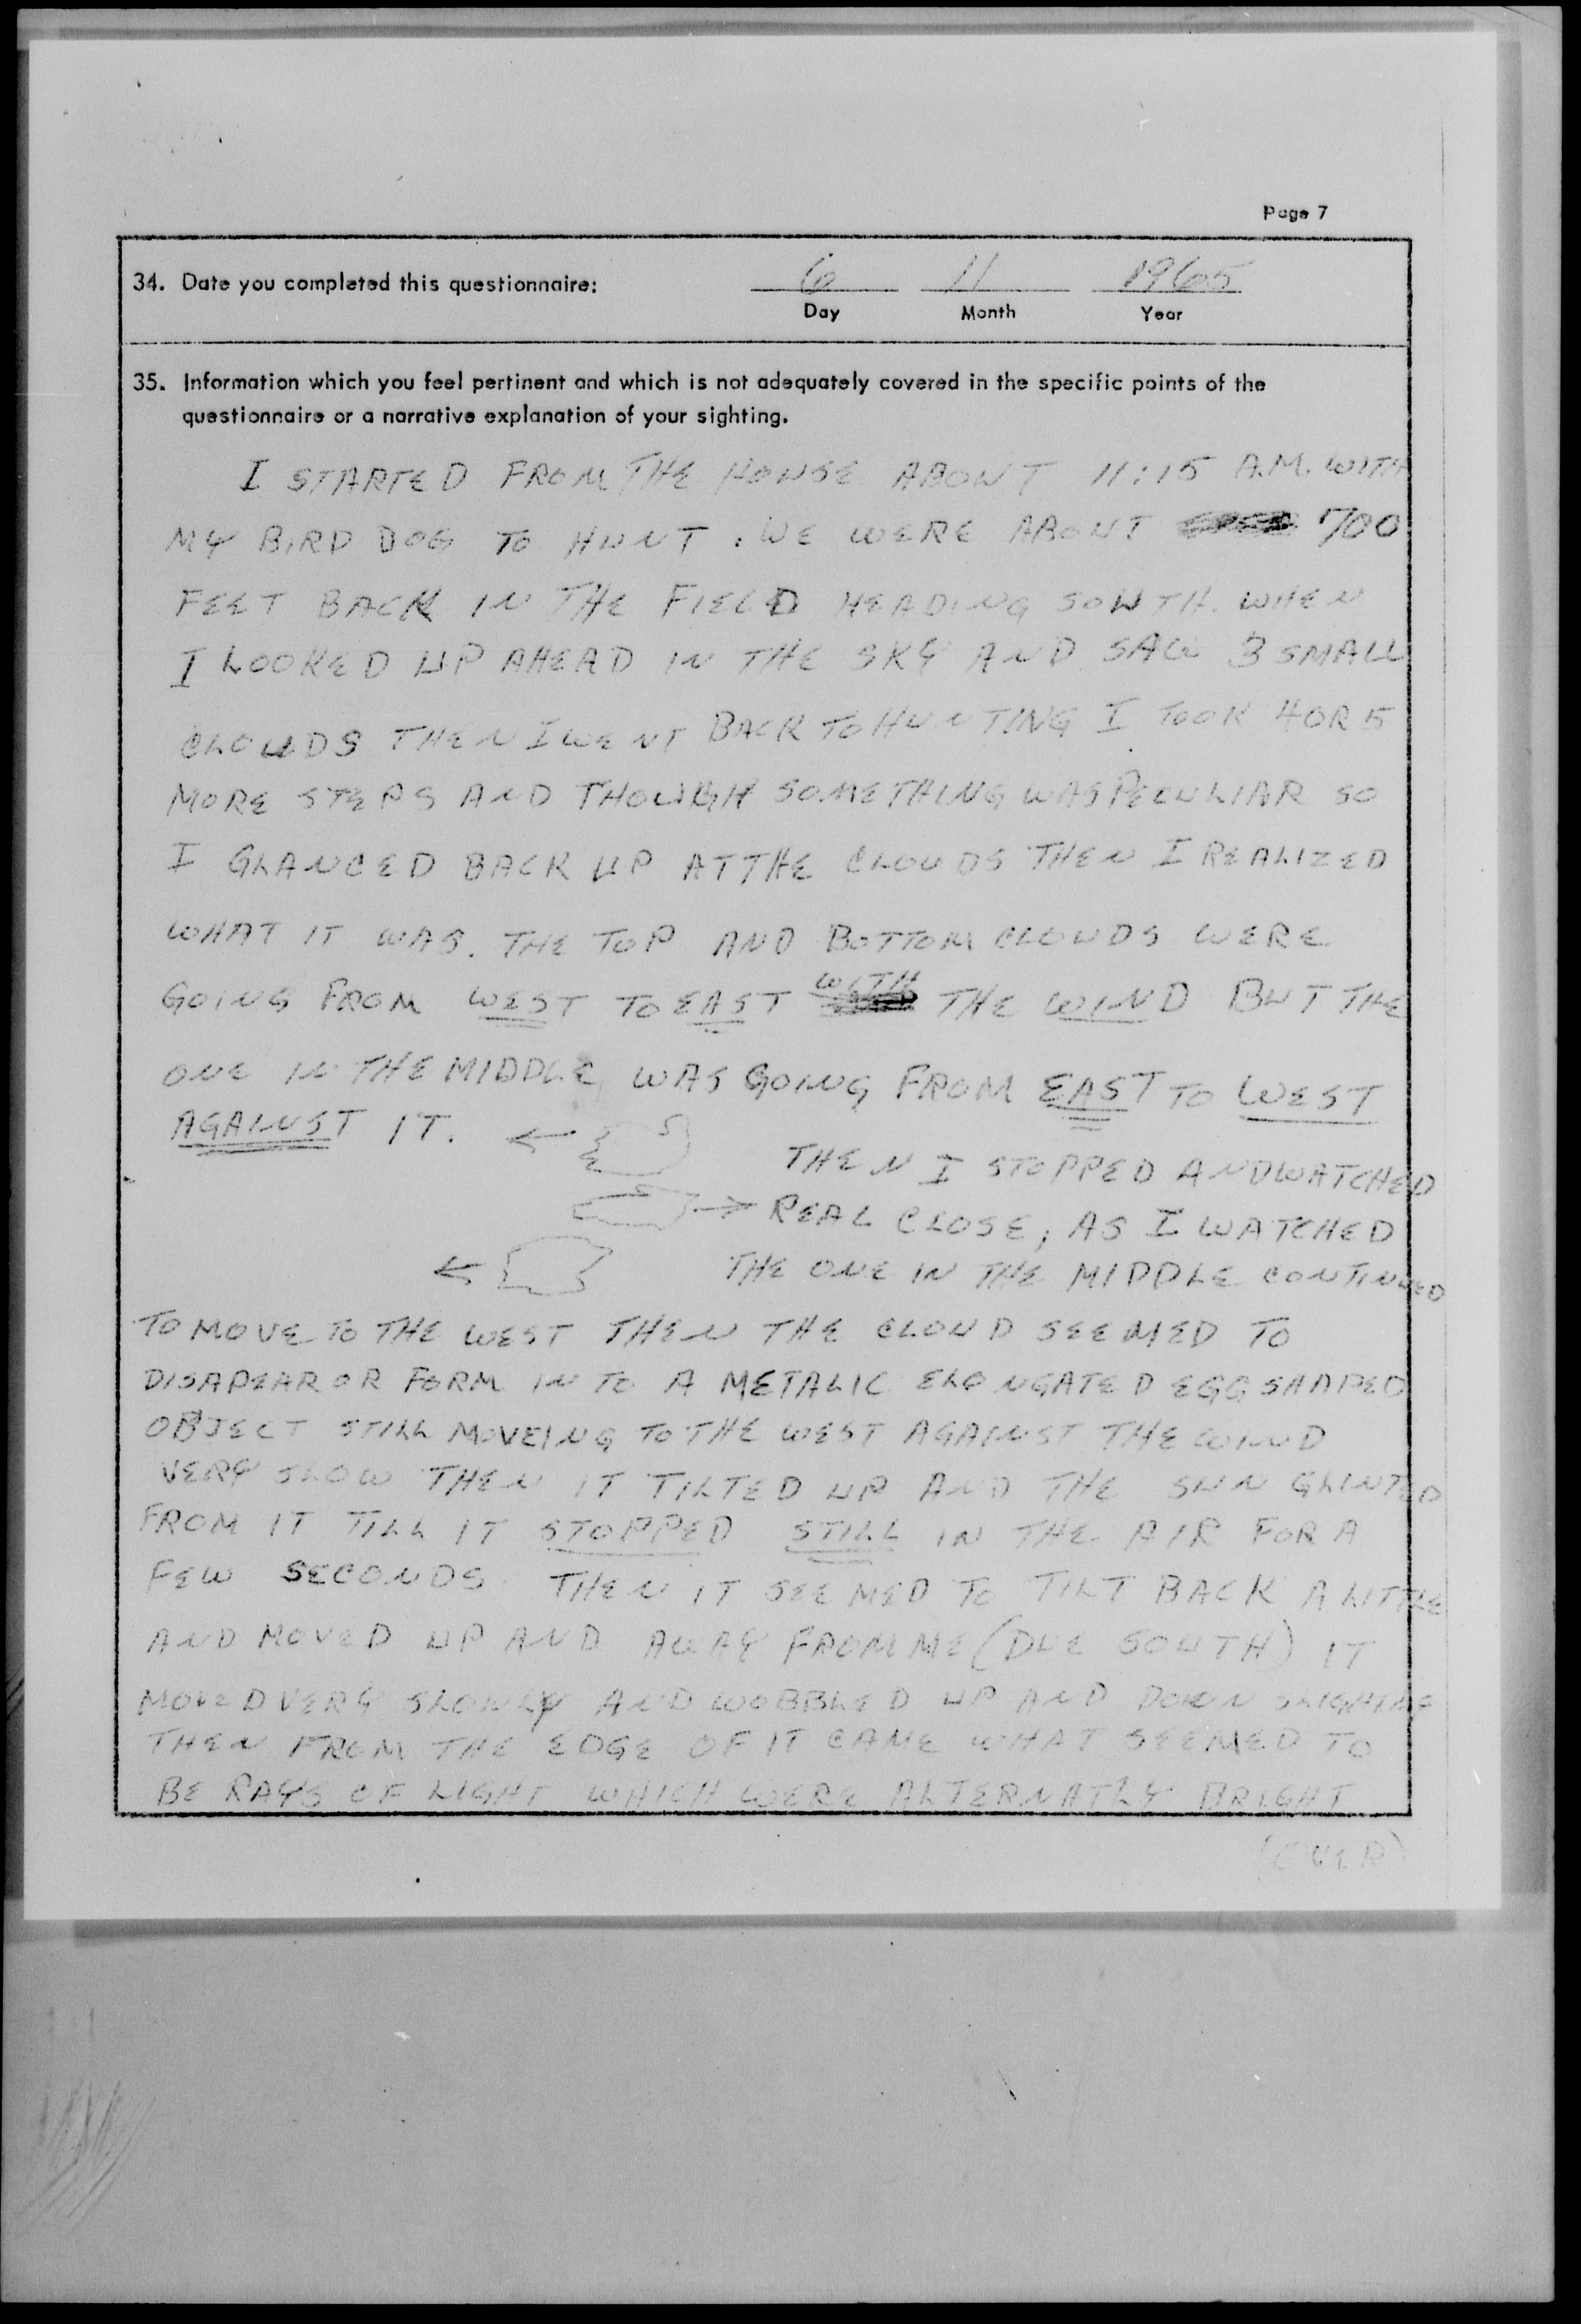 Page 7
34. Date you completed this questionnaire: 6 11 1965
Day Month Year
35. Information which you feel pertinent and which is not adequately covered in the specific points of the
questionnaire or a narrative explanation of your sighting.
I STARTED FROM THE HOUSE ABOUT 11:15 A.M. WITH
MY BIRD DOG TO HUNT. WE WERE ABOUT 700
FEET BACK IN THE FIELD HEADING SOUTH. WHEN
I LOOKED UP AHEAD IN THE SKY AND SAW 3 SMALL
CLOUDS THEN I WENT BACK TO HUNTING I TOOK 4 OR 5
MORE STEPS AND THOUGH SOMETHING WAS PECULIAR SO
I GLANCED BACK UP AT THE CLOUDS THEN I REALIZED
WHAT IT WAS. THE TOP AND BOTTOM CLOUDS WERE
GOING FROM WEST TO EAST WITH THE WIND BUT THE
ONE IN THE MIDDLE WAS GOING FROM EAST TO WEST
AGAINST IT.
THEN I STOPPED AND WATCHED
REAL CLOSE, AS I WATCHED
THE ONE IN THE MIDDLE CONTINUED
TO MOVE TO THE WEST THEN THE CLOUD SEEMED TO
DISAPEAR OR FORM IN TO A METALIC ELONGATED EGG SHAPED
OBJECT STILL MOVEING TO THE WEST AGAINST THE WIND
VERY SLOW THEN IT TILTED UP AND THE SUN GLINTED
FROM IT TILL IT STOPPED STILL IN THE AIR FOR A
FEW SECONDS THEN IT SEEMED TO TILT BACK A LITTLE
AND MOVED UP AND AWAY FROM ME (DUE SOUTH) IT
MOVED VERY SLOWLY AND WOBBLED UP AND DOWN SLIGHTLY
THEN FROM THE EDGE OF IT CAME WHAT SEEMED TO
BE RAYS OF LIGHT WHICH WERE ALTERNATLY BRIGHT
(OVER)